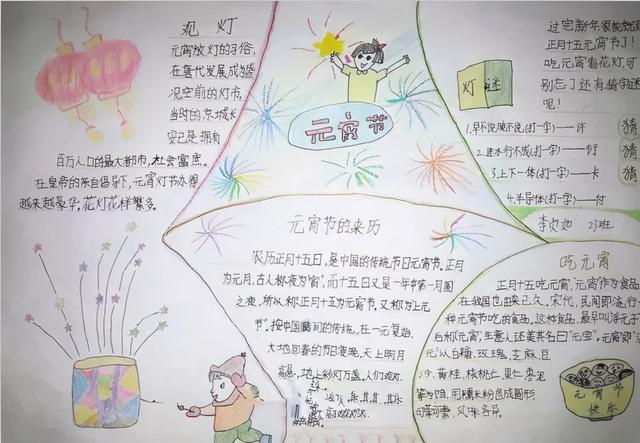 观灯
元宵放灯的习俗,
在唐代发展成为盛
况空前的灯市,
当时的京城长
安已是拥有
百万人口的最大都市,社会富庶。
在皇帝的亲自倡导下,元宵灯节办得
越来越豪华。花灯花样繁多。
元宵节
过完新年,很快就迎
正月十五元宵节了!
吃元宵看花灯,可
别忘了还有猜字谜
呢!
灯谜
1.早不说晚不说(打一字)——许
猜
2.进水行不成(打一字)——衍
猜
3.上下一体(打一字)——卡
猜
4.半导体(打一字)——付
23班
元宵节的来历
农历正月十五日,是中国的传统节日元宵节。正月
为元月,古人称夜为"宵",而十五日又是一年中第一个月圆
之夜,所以称正月十五为元宵节。又称为上元
节"。按中国民间的传统,在一元复始,
大地回春的节日夜晚,天上明月
高悬,地上彩灯万盏,人们观灯、
吃元宵
正月十五吃元宵,"元宵"作为食品,
在我国也由来已久。宋代,民间即流行一
种元宵节吃的食品。这种食品,最早叫"浮元子"
后称"元宵",生意人还美其名曰"元宝"。元宵即"汤
元"以白糖、玫瑰、芝麻、豆
沙、黄桂、核桃仁、果仁、枣泥
等为馅,用糯米粉包成圆形
可荤可素,风味各异。
元宵节
快乐